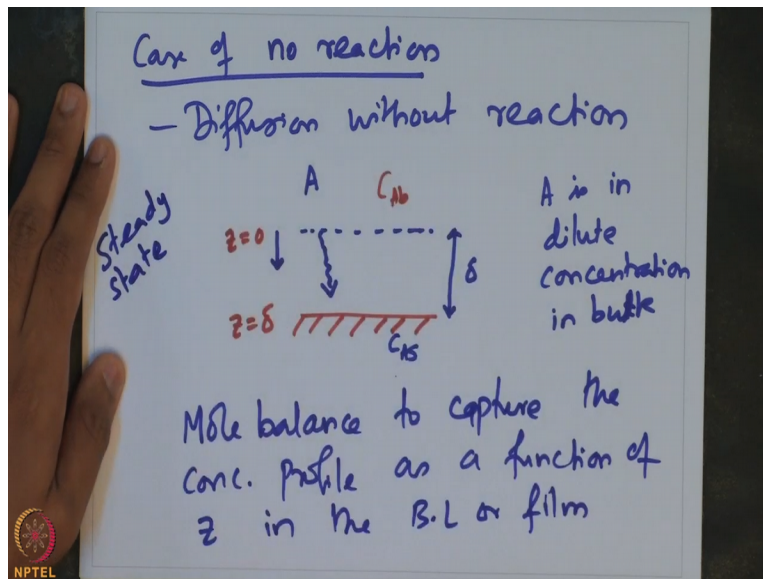 Case of no reaction
– Diffusion without reaction
Steady
state
A
C_Ab
z=0
δ
z=δ
C_As
A is in
dilute
concentration
in bulk
Mole balance to capture the
conc. profile as a function of
z in the B.L or film
NPTEL